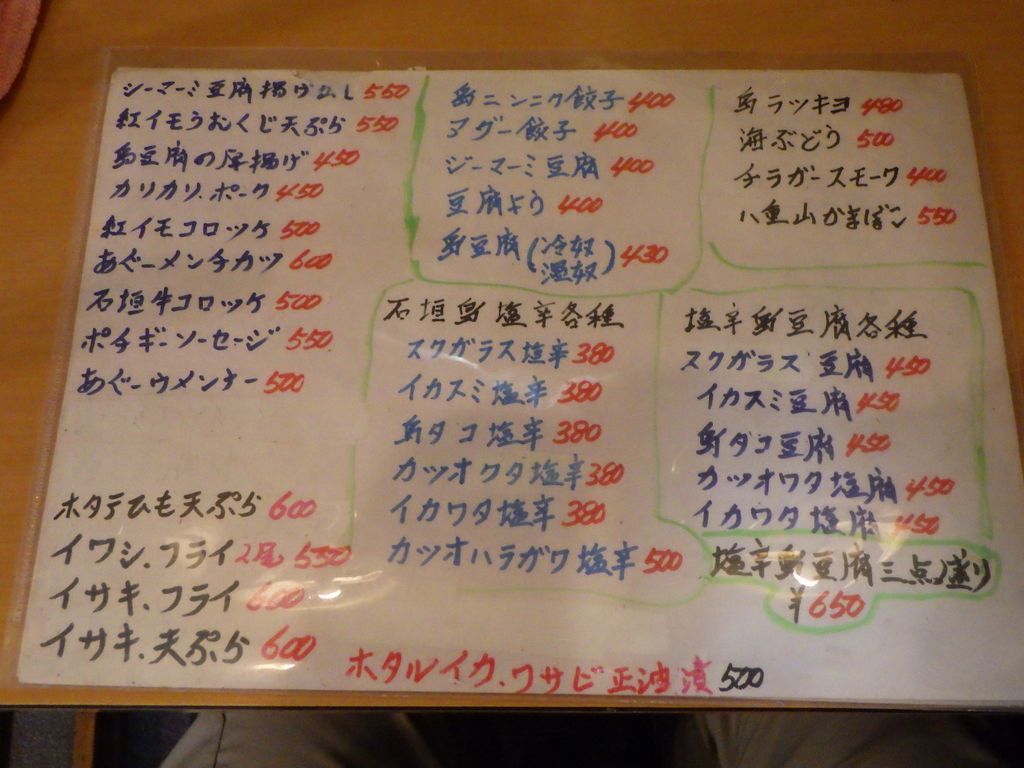 ジーマーミ豆腐揚げ出し 550
紅イモうむくじ天ぷら 550
島豆腐の厚揚げ 450
カリカリ.ポーク 450
紅イモコロッケ 500
あぐーメンチカツ 600
石垣牛コロッケ 500
ポチギーソーセージ 550
あぐーウィンナー 500
ホタテひも天ぷら 600
イワシ.フライ 2尾 550
イサキ.フライ 600
イサキ.天ぷら 600
島ニンニク餃子 400
アグー餃子 400
ジーマーミ豆腐 400
豆腐よう 400
島豆腐(冷奴 温奴) 430
島ラッキョ 480
海ぶどう 500
チラガースモーク 400
八重山かまぼこ 550
石垣島塩辛各種
スクガラス塩辛 380
イカスミ塩辛 380
島タコ塩辛 380
カツオワタ塩辛 380
イカワタ塩辛 380
カツオハラガワ塩辛 500
塩辛島豆腐各種
スクガラス豆腐 450
イカスミ豆腐 450
島ダコ豆腐 450
カツオワタ塩腐 450
イカワタ塩腐 450
塩辛島豆腐三点盛り
¥650
ホタルイカ.ワサビ正油漬 500